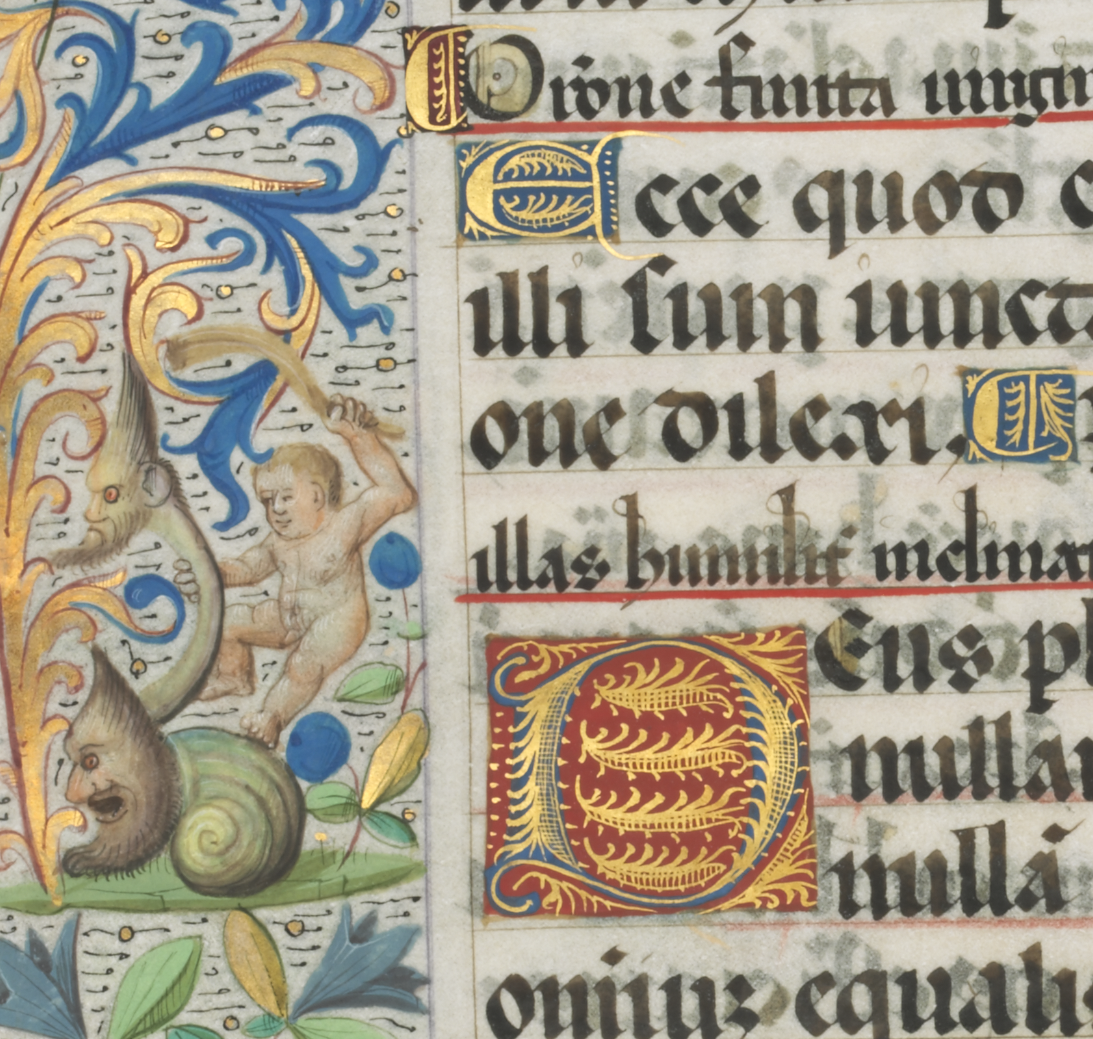 Orōne finita uirgin
Ecce quod c
illi sum iuncta
one dilexi.
illas humilit inclinat
Deus pl
nullar
nullā
omniuz equalis